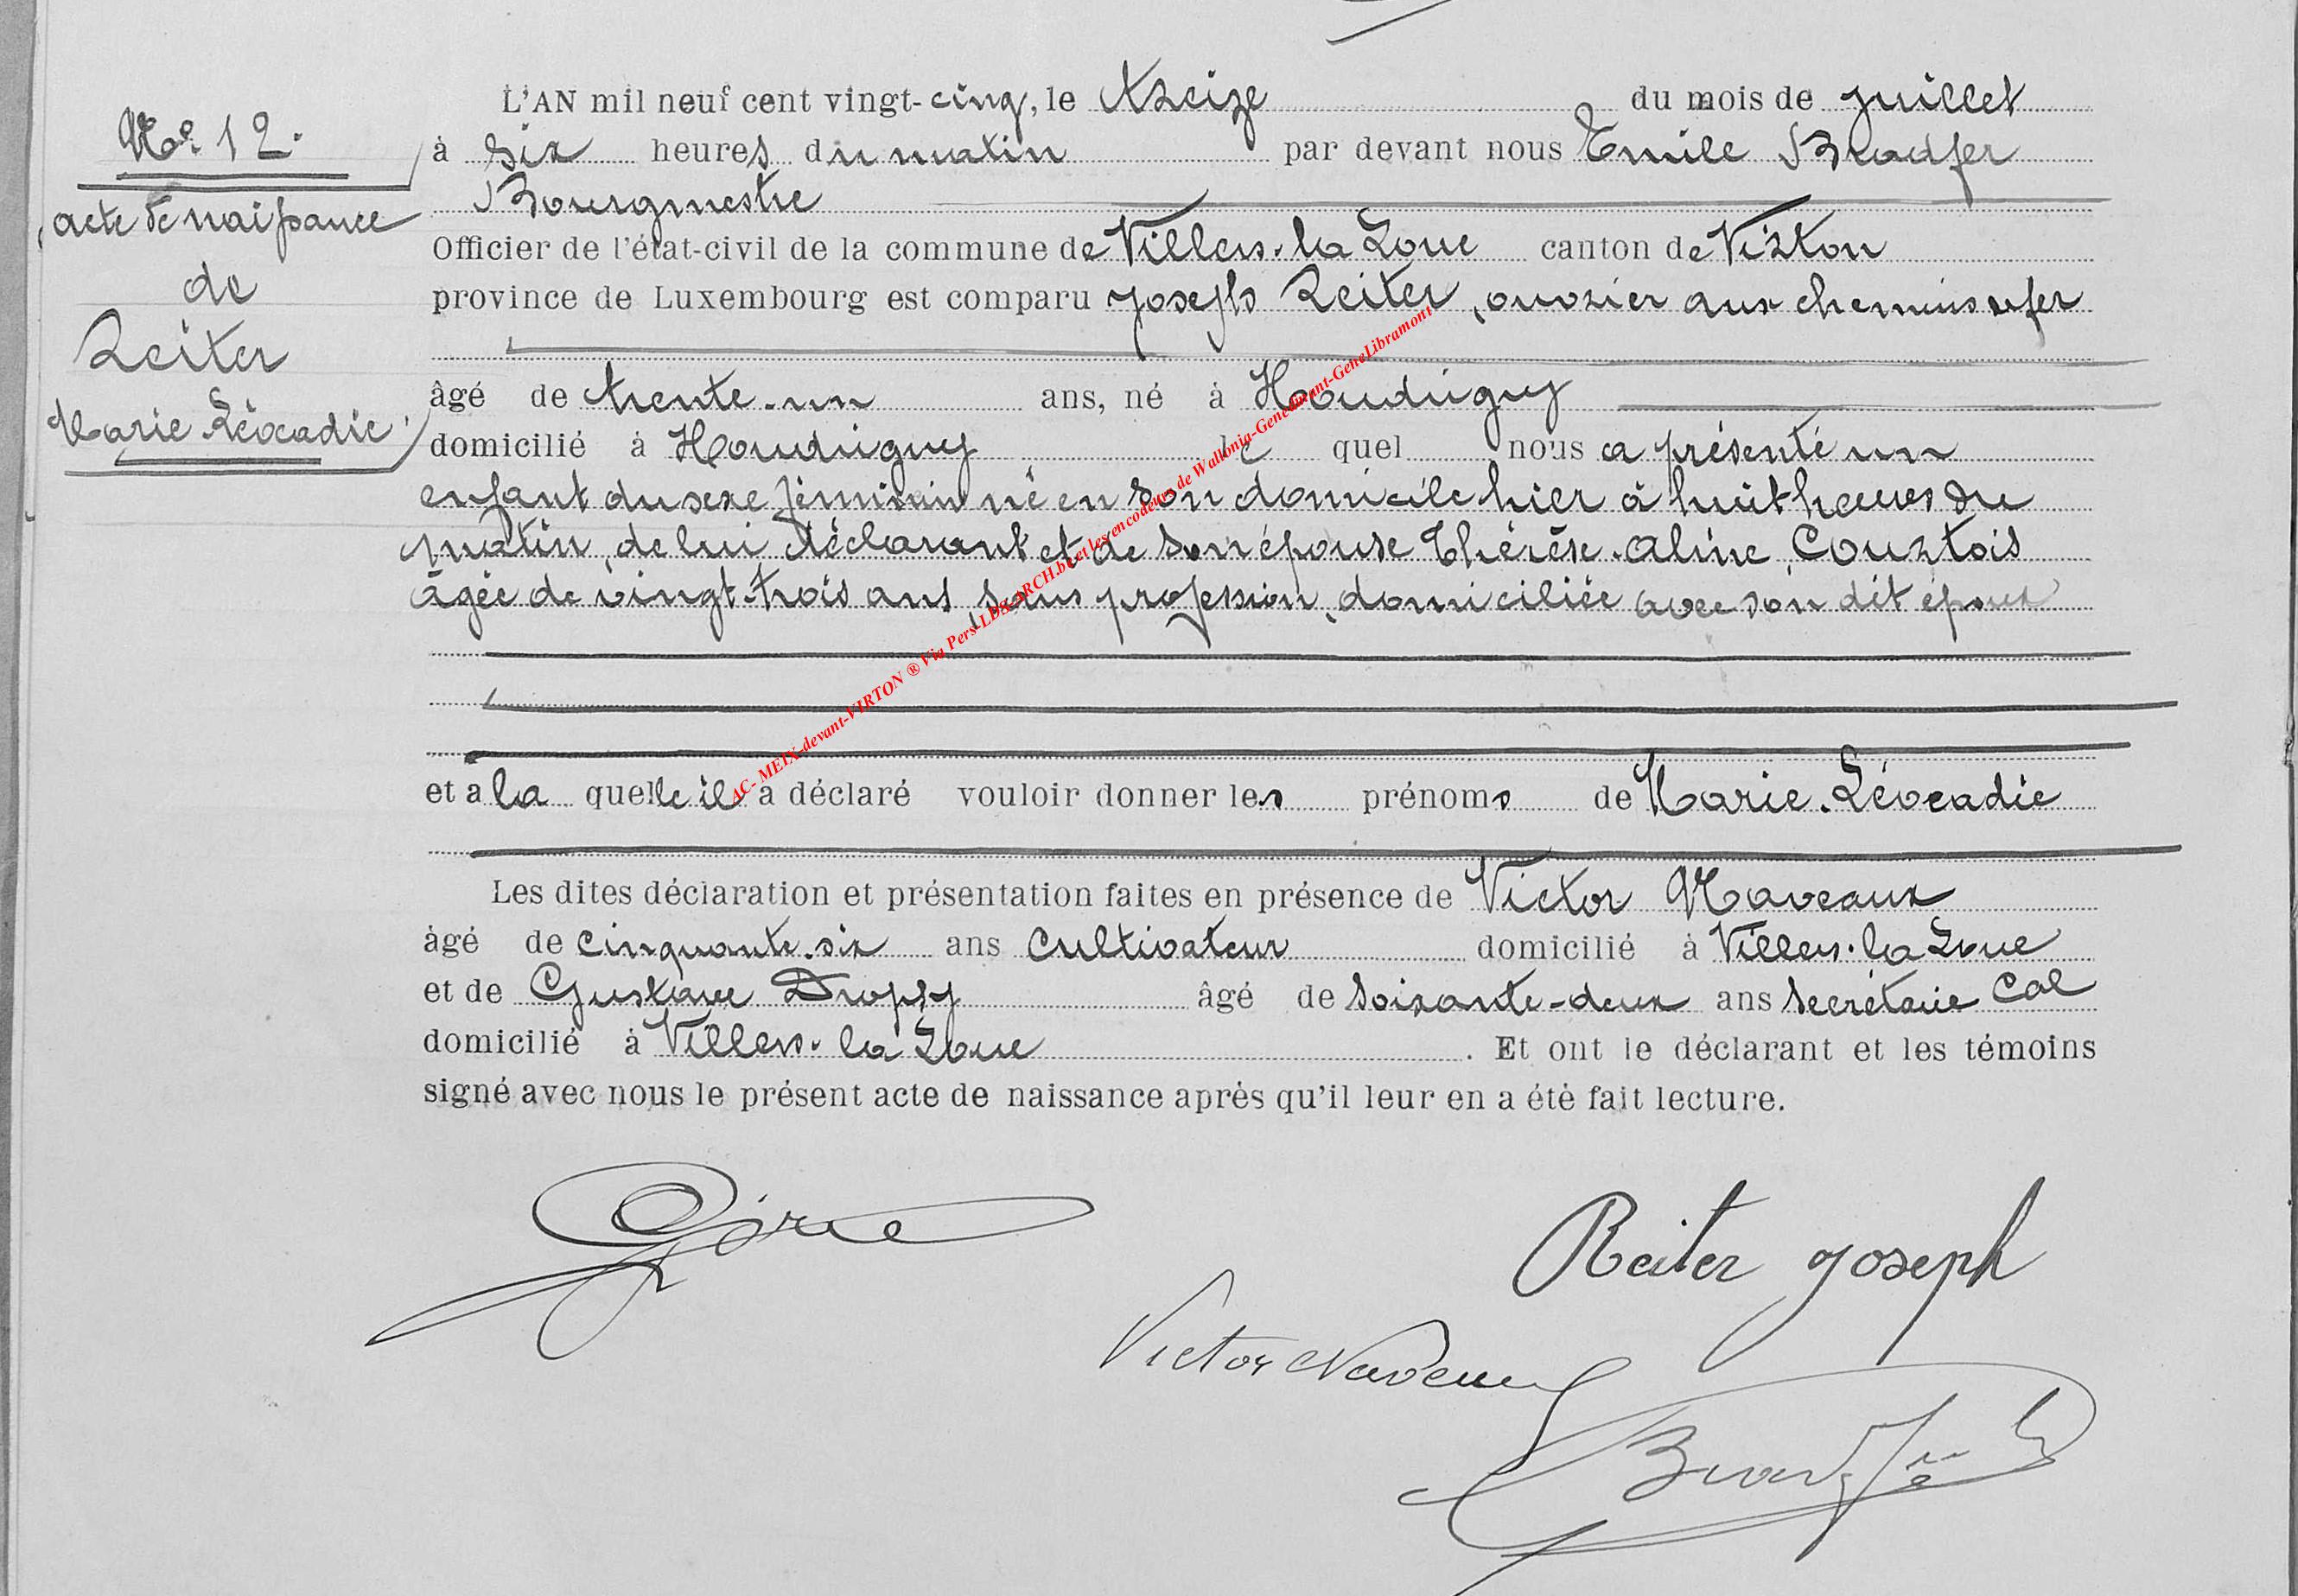 N° 12.
acte de naissance
de
Reiter
Marie-Léocadie
L'AN mil neuf cent vingt-cinq, le treize du mois de juillet
à six heures du matin par devant nous Emile Bradfer
Bourgmestre
Officier de l'état-civil de la commune de Villers-la-Loue canton de Virton
province de Luxembourg est comparu Joseph Reiter, ouvrier aux chemins de fer
âgé de trente-un ans, né à Houdrigny
domicilié à Houdrigny le quel nous a présenté un
enfant du sexe féminin né en son domicile hier à huit heures du
matin, de lui déclarant et de son épouse Thérèse-Aline, Courtois
âgée de vingt-trois ans, sans profession, domiciliée avec son dit époux
et à la quelle il a déclaré vouloir donner les prénoms de Marie-Léocadie
Les dites déclaration et présentation faites en présence de Victor Naveaux
âgé de cinquante-six ans cultivateur domicilié à Villers-la-Loue
et de Gustave Dropsy âgé de soixante-deux ans secrétaire Cal
domicilié à Villers-la-Loue. Et ont le déclarant et les témoins
signé avec nous le présent acte de naissance après qu'il leur en a été fait lecture.
Reiter Joseph
Victor Naveaux
Bradfer
AC- MEIX-devant-VIRTON ® Via Pers-LDS-ARCH.be et les encodeurs de Wallonia-Genedinant-GeneLibramont